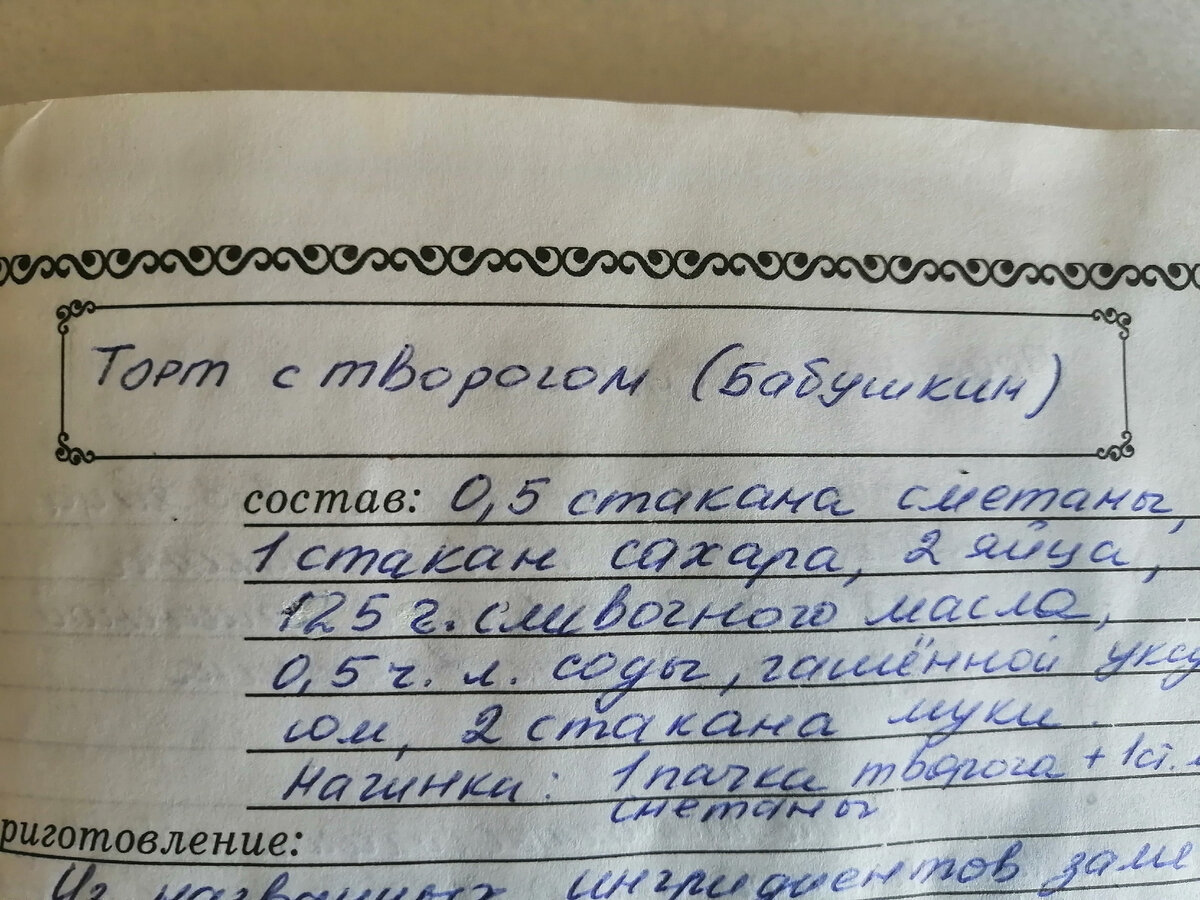 Торт с творогом (Бабушкин)
состав: 0,5 стакана сметаны,
1 стакан сахара, 2 яйца,
125 г. сливочного масла,
0,5 ч. л. соды, гашённой уксу
сом, 2 стакана муки.
Начинки: 1 пачка творога + 1 ст. л
сметаны
риготовление:
Из названных ингридиентов заме